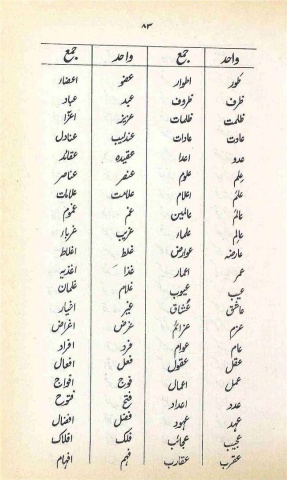 ۸۳
واحد جمع واحد جمع
طور اطوار عضو اعضاء
ظرف ظروف عبد عباد
ظلمت ظلمات عزیز اعزا
عادت عادات عندلیب عنادل
عدو اعدا عقیدہ عقائد
علم علوم عنصر عناصر
علم اعلام علامت علامات
عالم عالمین غم غموم
عالم علماء غریب غرباء
عارضہ عوارض غلط اغلاط
عمر اعمار غذا اغذیہ
عیب عیوب غلام غلمان
عاشق عشاق غیر اغیار
عزم عزائم غرض اغراض
عام عوام فرد افراد
عقل عقول فعل افعال
عمل اعمال فوج افواج
عدد اعداد فتح فتوح
عہد عہود فضل افضال
عجیب عجائب فلک افلاک
عقرب عقارب فہم افہام